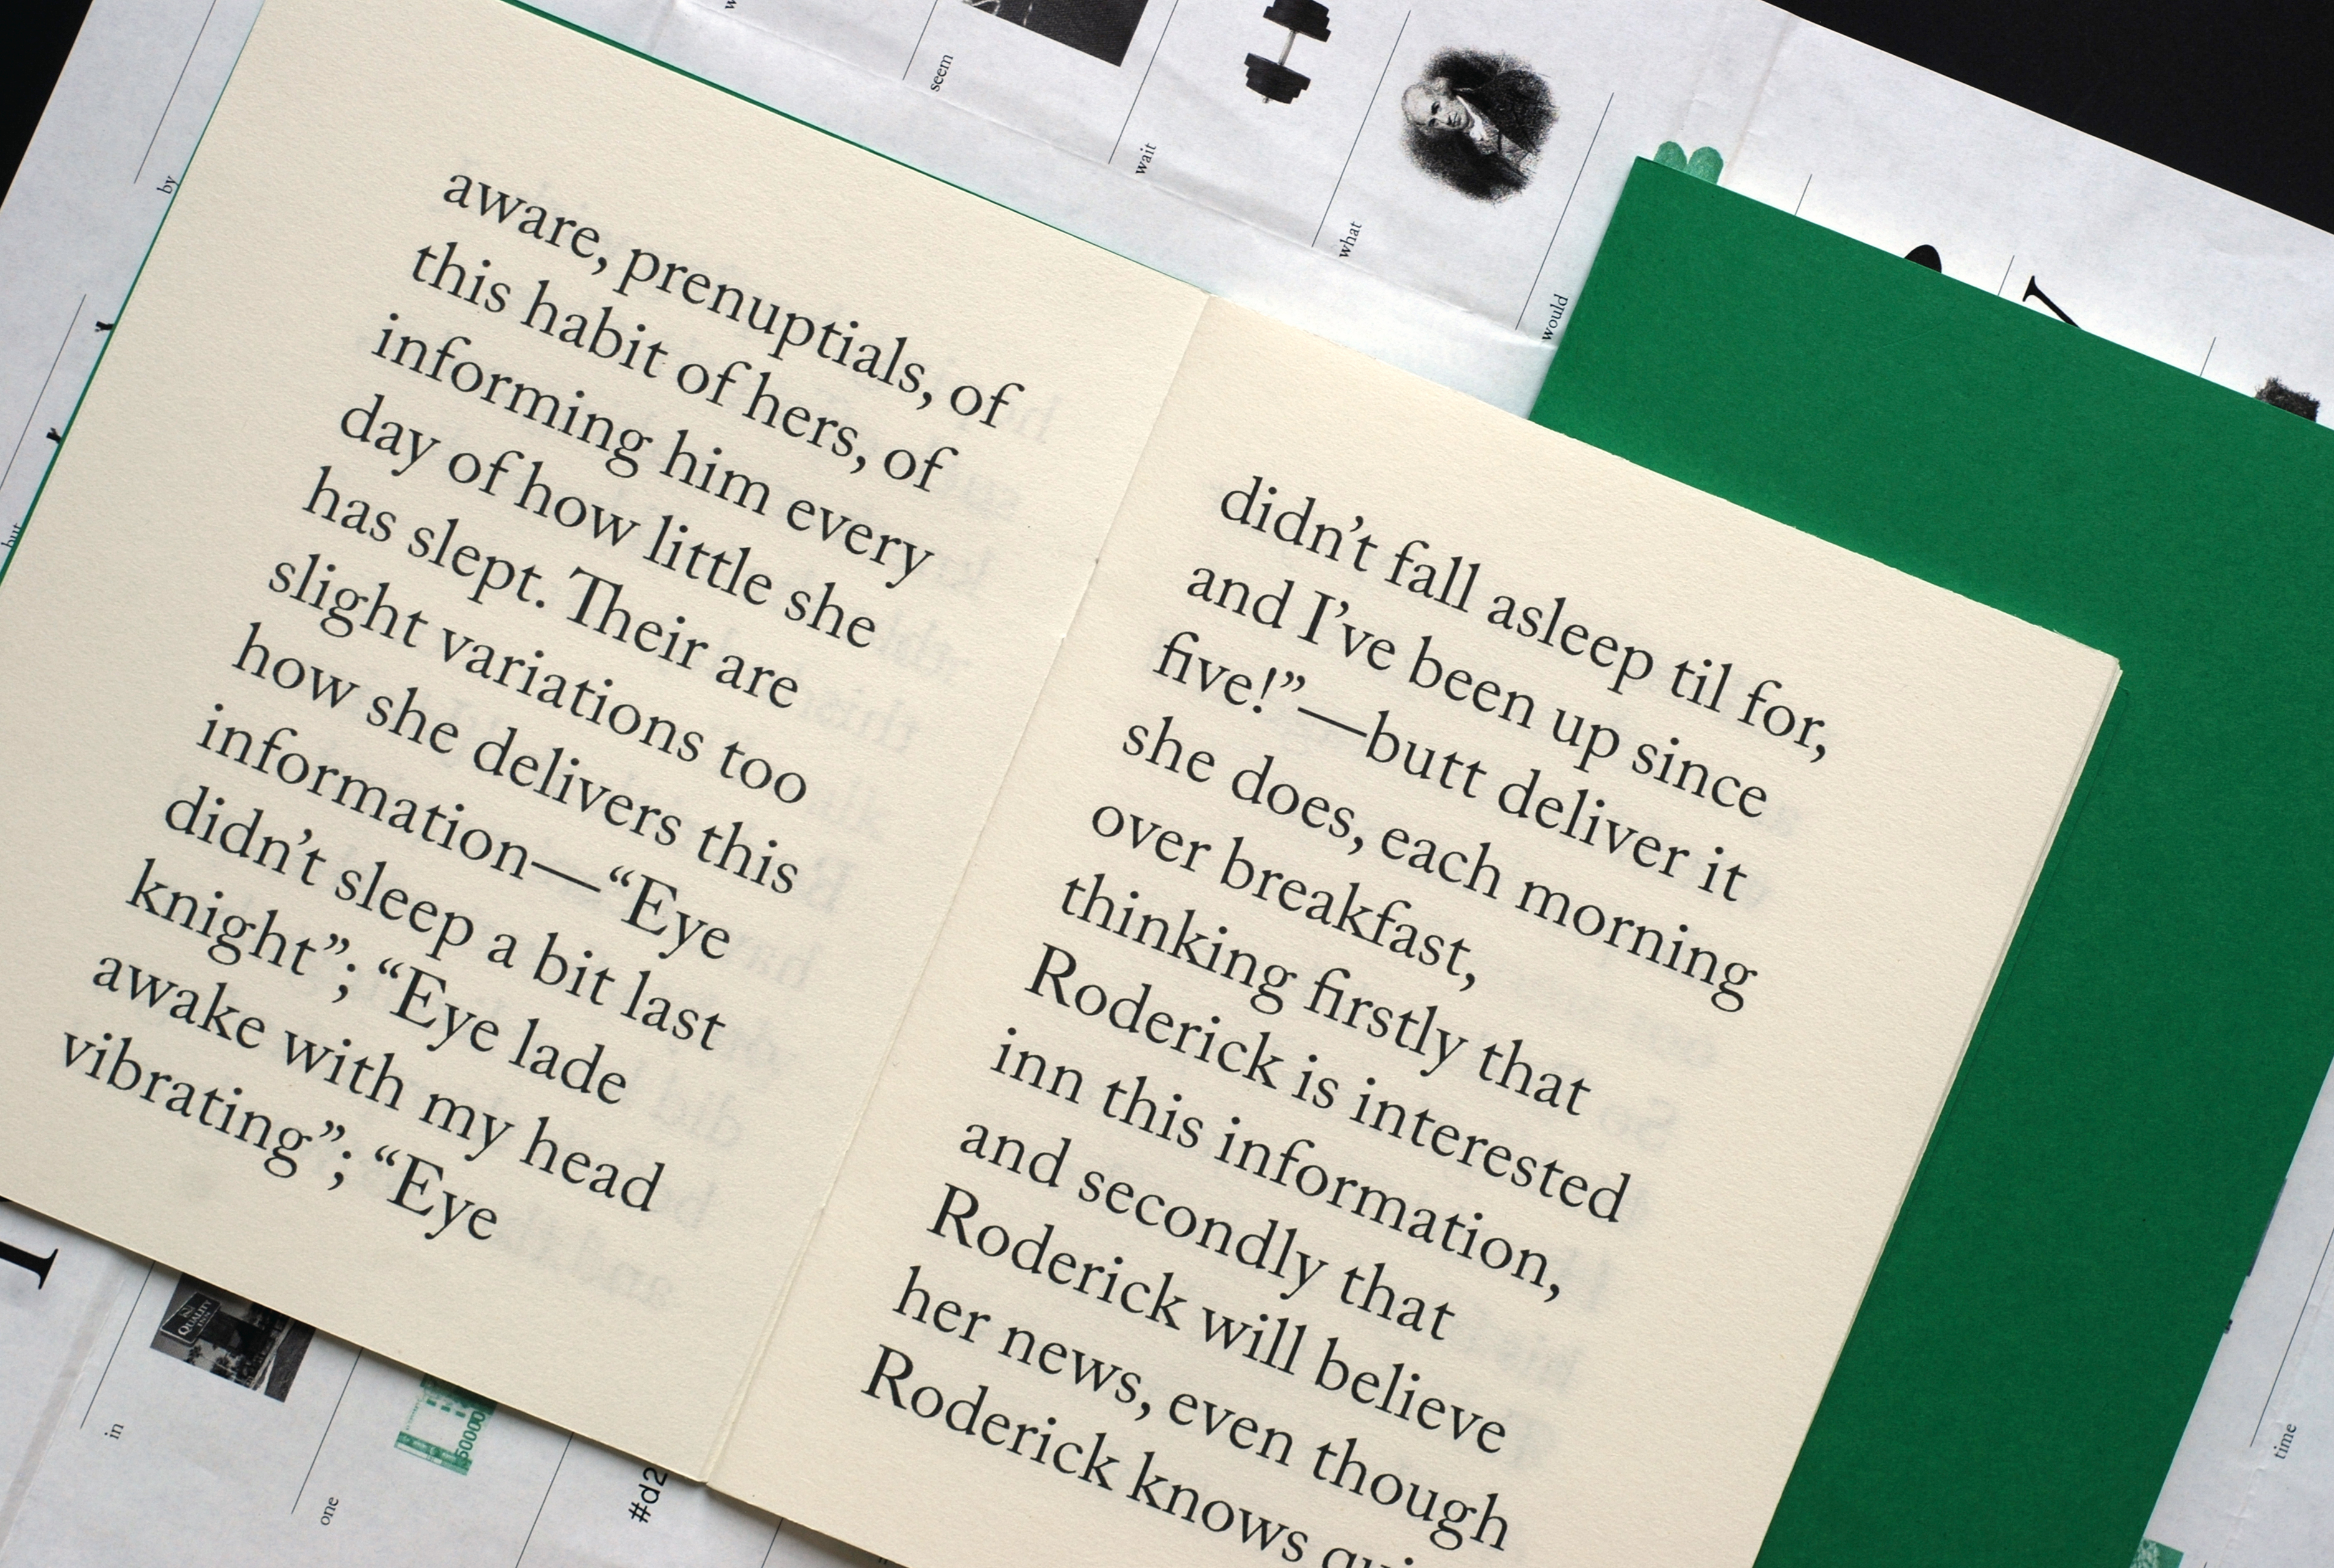 aware, prenuptials, of
this habit of hers, of
informing him every
day of how little she
has slept. Their are
slight variations too
how she delivers this
information—“Eye
didn’t sleep a bit last
knight”; “Eye lade
awake with my head
vibrating”; “Eye
didn’t fall asleep til for,
and I’ve been up since
five!”—butt deliver it
she does, each morning
over breakfast,
thinking firstly that
Roderick is interested
inn this information,
and secondly that
Roderick will believe
her news, even though
Roderick knows
by
seem
wait
what
would
but
in
one
time
QUALITY
INN
50000
#d2